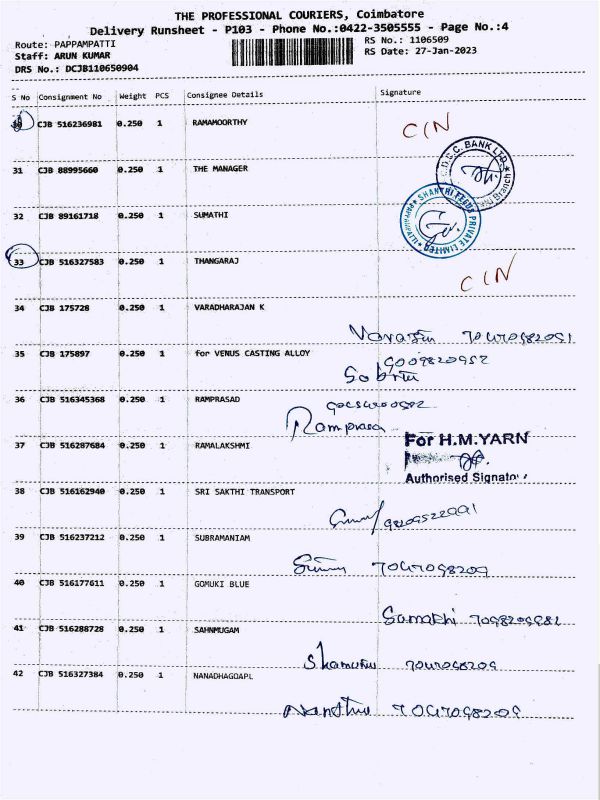 THE PROFESSIONAL COURIERS, Coimbatore
Delivery Runsheet - P103 - Phone No.:0422-3505555 - Page No.:4
Route: PAPPAMPATTI
RS No.: 1106509
Staff: ARUN KUMAR
RS Date: 27-Jan-2023
DRS No.: DCJB110650904
S No Consignment No Weight PCS Consignee Details Signature
30 CJB 516236981 0.250 1 RAMAMOORTHY
CIN
31 CJB 88995660 0.250 1 THE MANAGER
BANK LTD.
32 CJB 89161718 0.250 1 SUMATHI
SHANTHI FEEDS PRIVATE LIMITED
33 CJB 516327583 0.250 1 THANGARAJ
CIN
34 CJB 175728 0.250 1 VARADHARAJAN K
35 CJB 175897 0.250 1 for VENUS CASTING ALLOY
36 CJB 516345368 0.250 1 RAMPRASAD
Ramprasa
37 CJB 516287684 0.250 1 RAMALAKSHMI
For H.M.YARN
Authorised Signatory
38 CJB 516162940 0.250 1 SRI SAKTHI TRANSPORT
39 CJB 516237212 0.250 1 SUBRAMANIAM
40 CJB 516177611 0.250 1 GOMUKI BLUE
41 CJB 516288728 0.250 1 SAHNMUGAM
42 CJB 516327384 0.250 1 NANADHAGOAPL